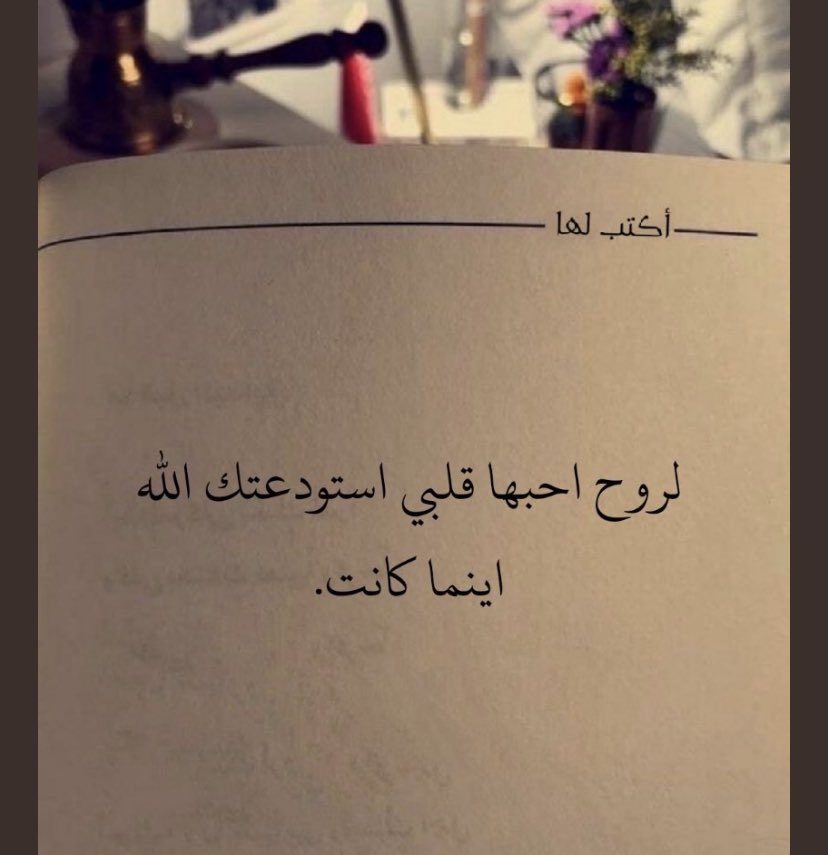 أكتب لها
لروح احبها قلبي استودعتك الله
اينما كانت.